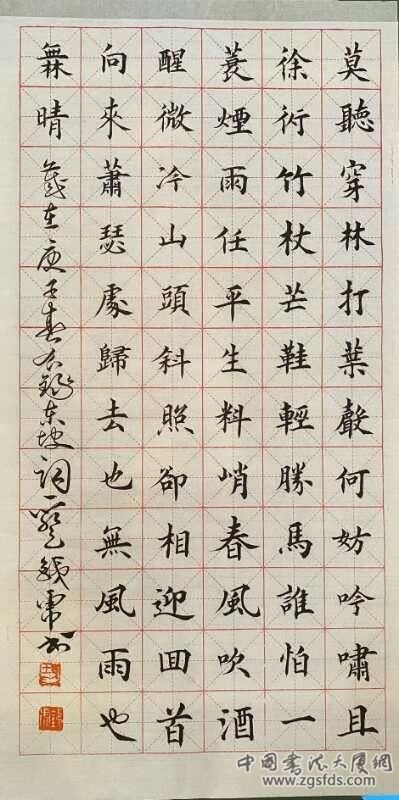 莫聽穿林打葉聲何妨吟嘯且
徐行竹杖芒鞋輕勝馬誰怕一
蓑煙雨任平生料峭春風吹酒
醒微冷山頭斜照卻相迎囬首
向來蕭瑟處歸去也無風雨也
橆晴 歲在庚子春右錄東坡詞一 書
中國書法大廈網
www.zgsfds.com